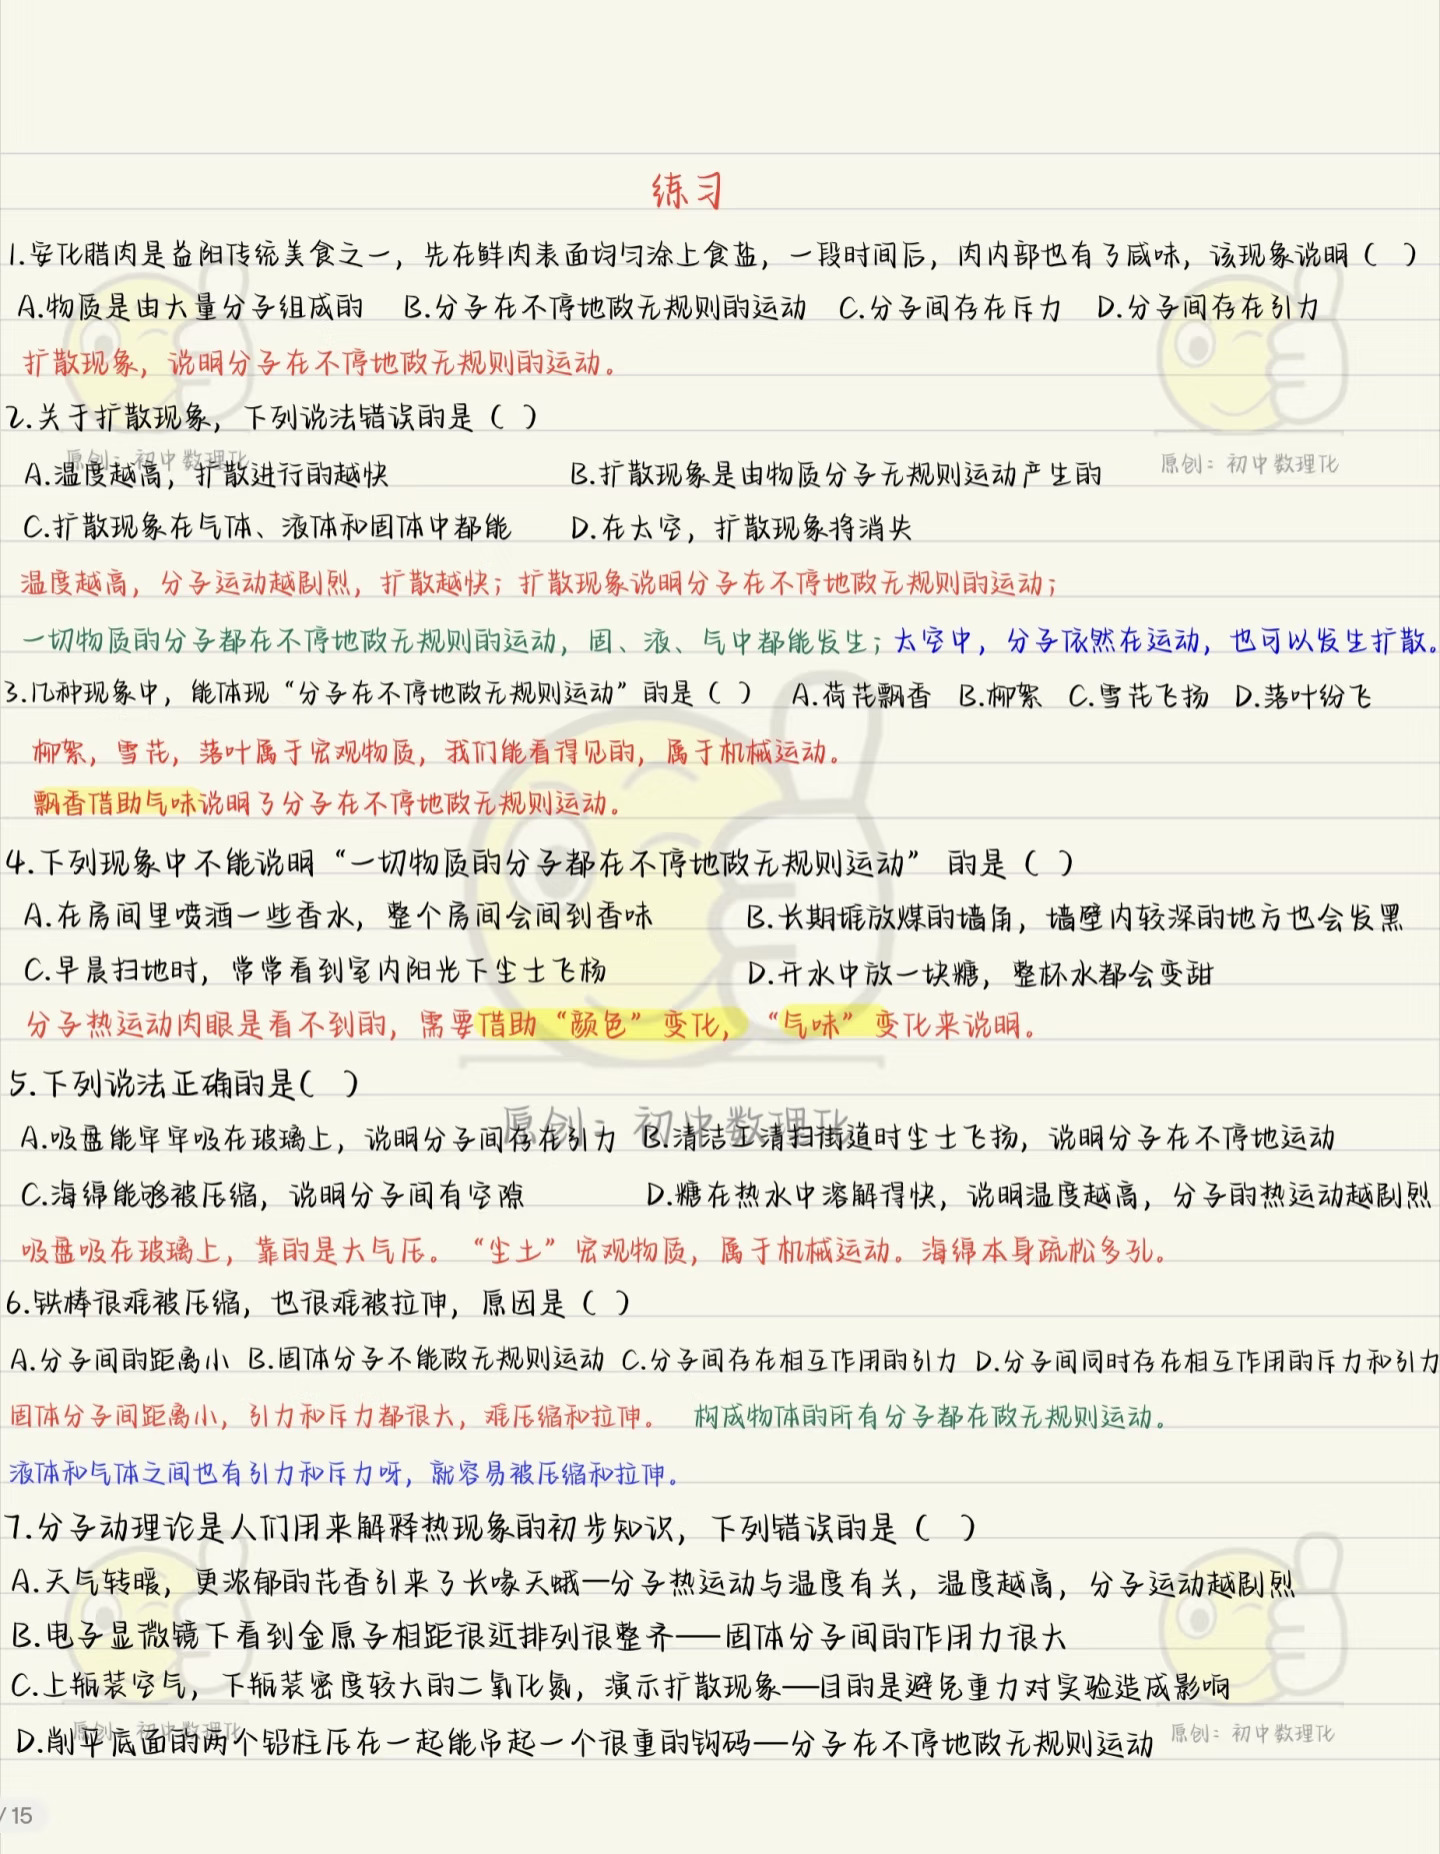 练习
1.安化腊肉是益阳传统美食之一，先在鲜肉表面均匀涂上食盐，一段时间后，肉内部也有了咸味，该现象说明（ ）
A.物质是由大量分子组成的 B.分子在不停地做无规则的运动 C.分子间存在斥力 D.分子间存在引力
扩散现象，说明分子在不停地做无规则的运动。
2.关于扩散现象，下列说法错误的是（ ）
原创：初中数理化
原创：初中数理化
A.温度越高，扩散进行的越快 B.扩散现象是由物质分子无规则运动产生的
C.扩散现象在气体、液体和固体中都能 D.在太空，扩散现象将消失
温度越高，分子运动越剧烈，扩散越快；扩散现象说明分子在不停地做无规则的运动；
一切物质的分子都在不停地做无规则的运动，固、液、气中都能发生；太空中，分子依然在运动，也可以发生扩散。
3.几种现象中，能体现“分子在不停地做无规则运动”的是（ ） A.荷花飘香 B.柳絮 C.雪花飞扬 D.落叶纷飞
柳絮，雪花，落叶属于宏观物质，我们能看得见的，属于机械运动。
飘香借助气味说明了分子在不停地做无规则运动。
4.下列现象中不能说明“一切物质的分子都在不停地做无规则运动” 的是（ ）
A.在房间里喷洒一些香水，整个房间会间到香味 B.长期堆放煤的墙角，墙壁内较深的地方也会发黑
C.早晨扫地时，常常看到室内阳光下尘土飞杨 D.开水中放一块糖，整杯水都会变甜
分子热运动肉眼是看不到的，需要借助“颜色”变化，“气味”变化来说明。
5.下列说法正确的是( )
原创：初中数理化
A.吸盘能牢牢吸在玻璃上，说明分子间存在引力 B.清洁工清扫街道时尘土飞扬，说明分子在不停地运动
C.海绵能够被压缩，说明分子间有空隙 D.糖在热水中溶解得快，说明温度越高，分子的热运动越剧烈
吸盘吸在玻璃上，靠的是大气压。“尘土”宏观物质，属于机械运动。海绵本身疏松多孔。
6.铁棒很难被压缩，也很难被拉伸，原因是（ ）
A.分子间的距离小 B.固体分子不能做无规则运动 C.分子间存在相互作用的引力 D.分子间同时存在相互作用的斥力和引力
固体分子间距离小，引力和斥力都很大，难压缩和拉伸。 构成物体的所有分子都在做无规则运动。
液体和气体之间也有引力和斥力呀，就容易被压缩和拉伸。
7.分子动理论是人们用来解释热现象的初步知识，下列错误的是（ ）
A.天气转暖，更浓郁的花香引来了长喙天蛾—分子热运动与温度有关，温度越高，分子运动越剧烈
B.电子显微镜下看到金原子相距很近排列很整齐——固体分子间的作用力很大
C.上瓶装空气，下瓶装密度较大的二氧化氮，演示扩散现象——目的是避免重力对实验造成影响
D.削平底面的两个铅柱压在一起能吊起一个很重的钩码—分子在不停地做无规则运动
原创：初中数理化
原创：初中数理化
/ 15